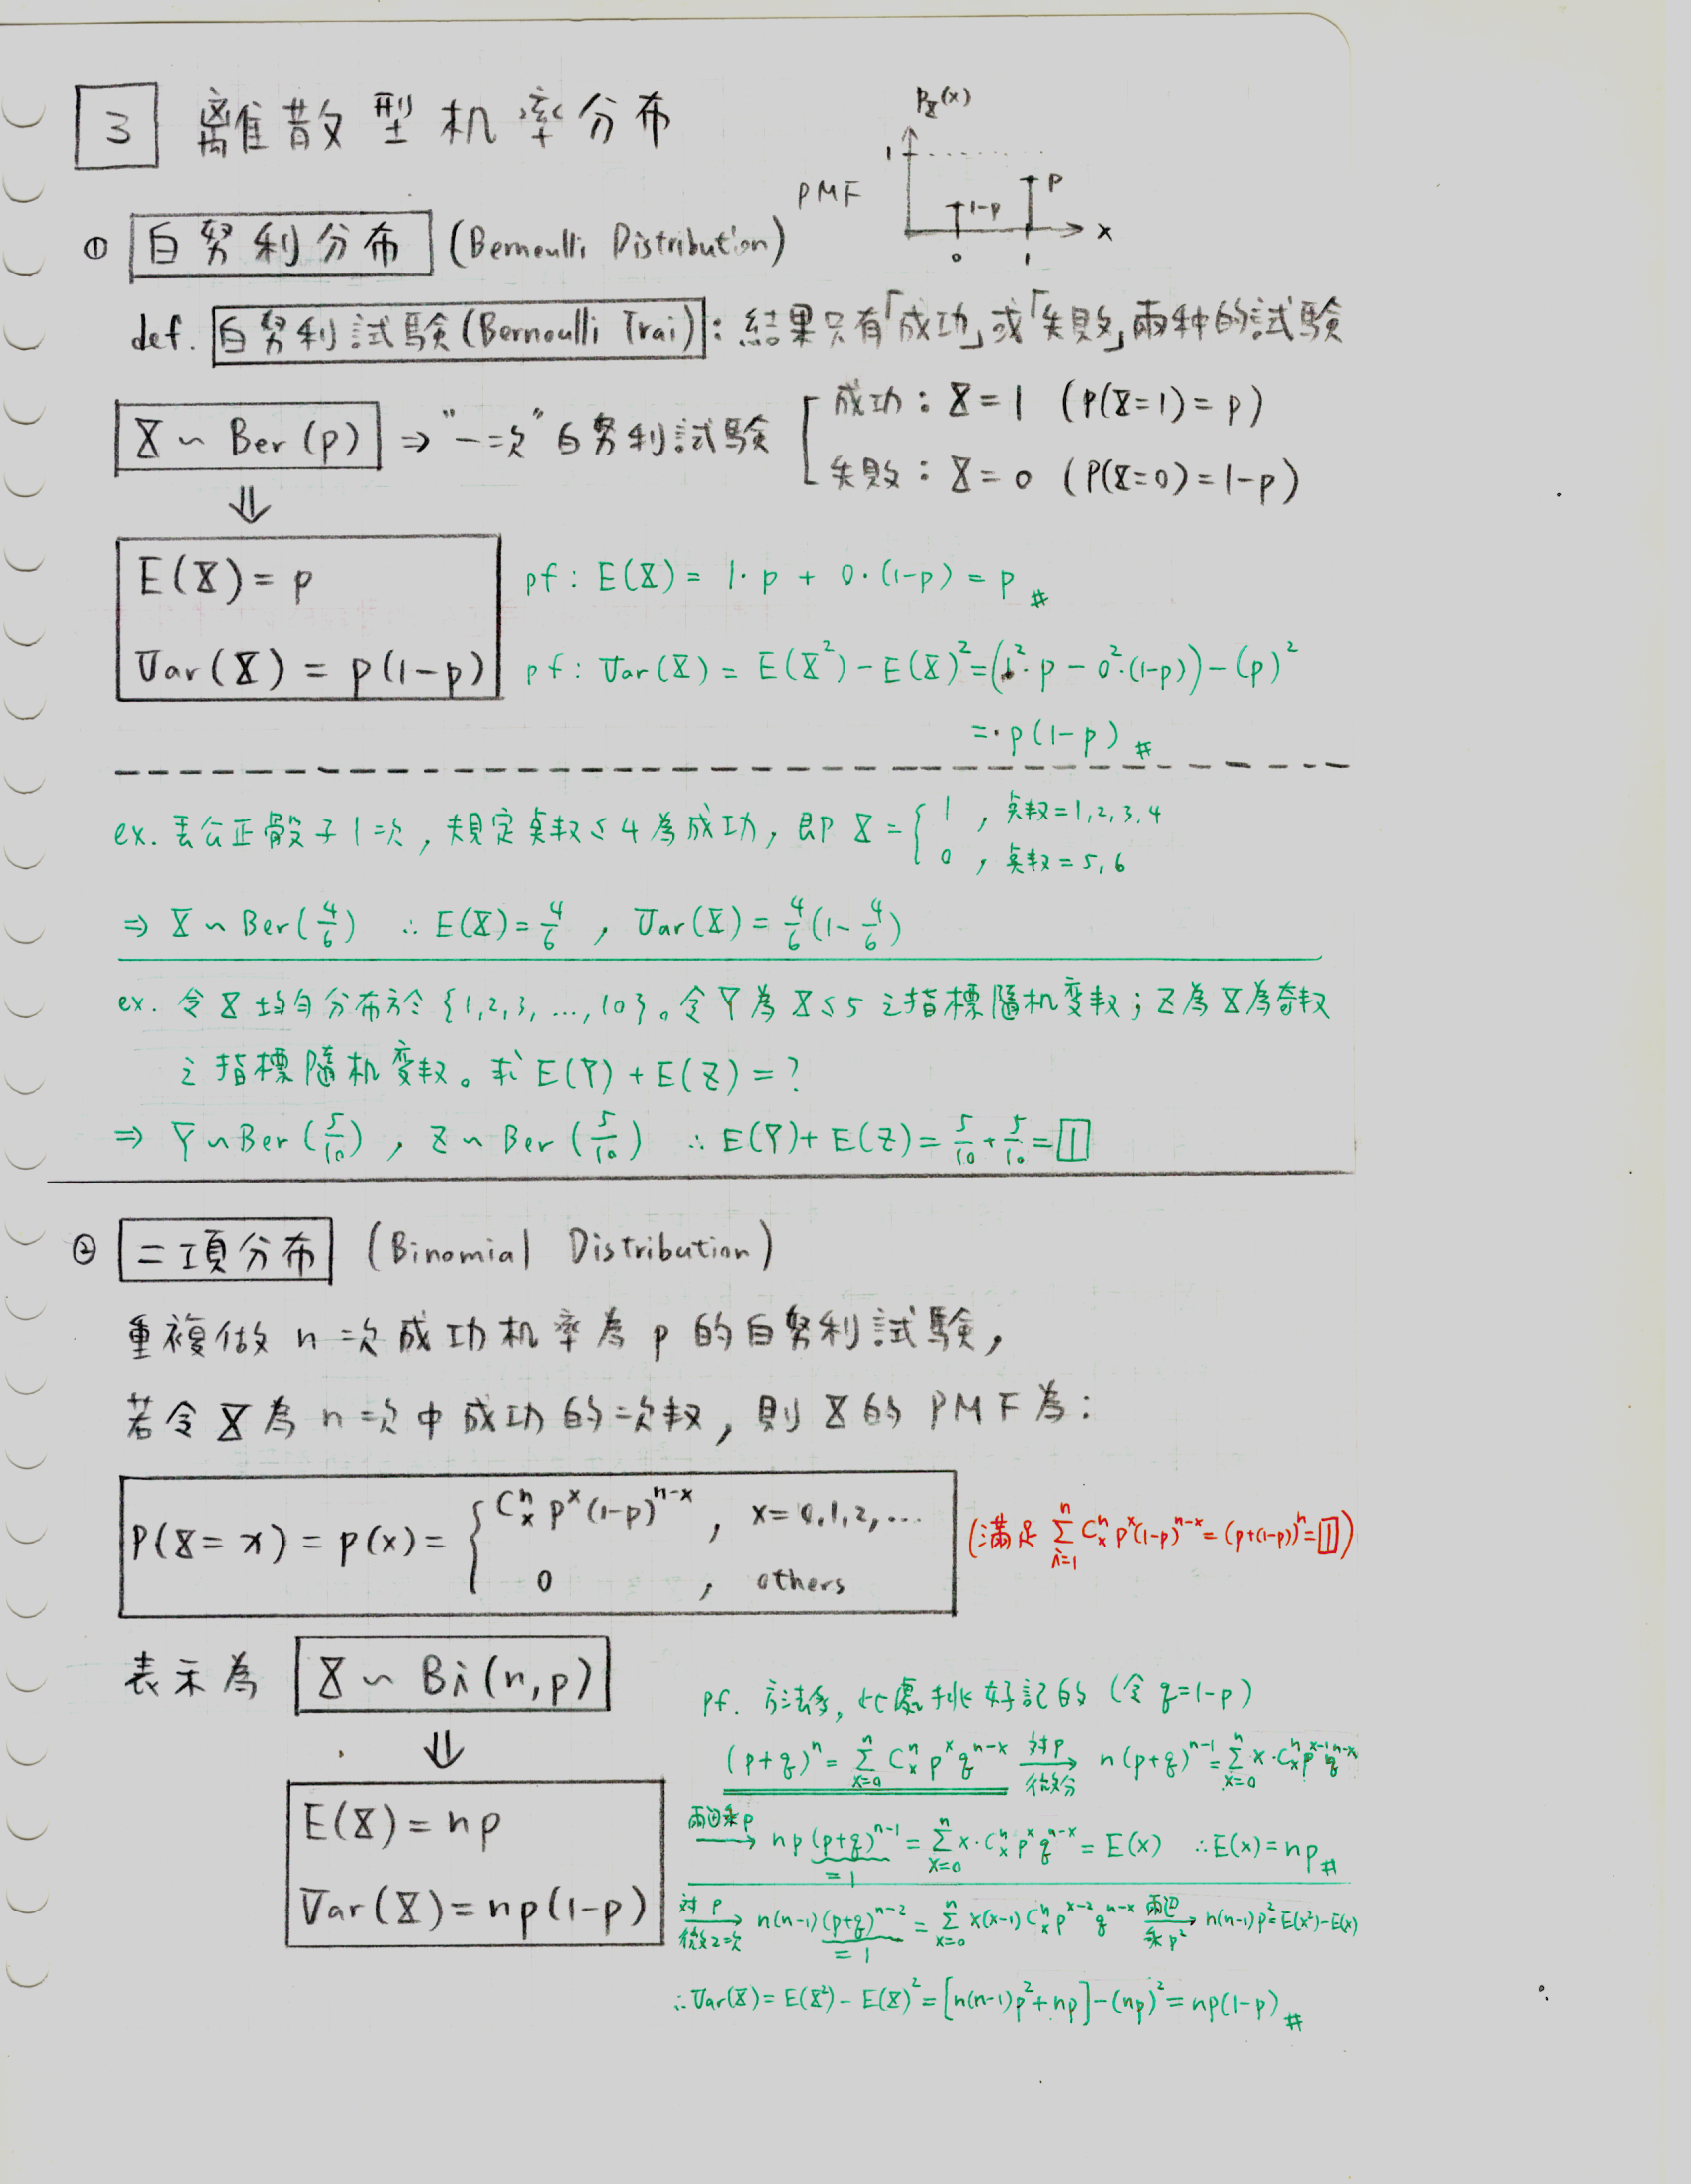 3 離散型机率分布
PMF P_X(x) 1 1-p p 0 1 x
① 白努利分布 (Bernoulli Distribution)
def. 白努利試驗(Bernoulli Trai): 結果只有「成功」或「失敗」兩种的試驗
X ~ Ber(p) ⇒ "一次" 白努利試驗
成功: X = 1 (P(X=1) = p)
失敗: X = 0 (P(X=0) = 1-p)
⇓
E(X) = p pf: E(X) = 1·p + 0·(1-p) = p #
Var(X) = p(1-p) pf: Var(X) = E(X²) - E(X)² = (1²·p - 0²·(1-p)) - (p)²
= p(1-p) #
ex. 丟公正骰子1次, 規定点数≤4為成功, 即 X = { 1 , 点数=1,2,3,4
0 , 点数=5,6
⇒ X ~ Ber(4/6) ∴ E(X) = 4/6 , Var(X) = 4/6(1-4/6)
ex. 令X均勻分布於{1,2,3,...,10}。令Y為X≤5之指標隨机変数; Z為X為奇数
之指標隨机変数。求E(Y)+E(Z)=?
⇒ Y~Ber(5/10) , Z~Ber(5/10) ∴ E(Y)+E(Z) = 5/10 + 5/10 = 1
② 二項分布 (Binomial Distribution)
重複做 n 次成功机率為 p 的白努利試驗,
若令X為 n 次中成功的次数, 則X的PMF為:
P(X=x) = p(x) = { C^n_x p^x (1-p)^{n-x} , x=0,1,2,...
0 , others
(滿足 Σ_{i=1}^n C^n_x p^x (1-p)^{n-x} = (p+(1-p))^n = 1)
表示為 X ~ Bi(n,p)
⇓
E(X) = np
Var(X) = np(1-p)
pf. 方法多, 此處挑好記的 (令q=1-p)
(p+q)^n = Σ_{x=0}^n C^n_x p^x q^{n-x} 对p微分→ n(p+q)^{n-1} = Σ_{x=0}^n x·C^n_x p^{x-1} q^{n-x}
兩边乘p→ np(p+q)^{n-1} = Σ_{x=0}^n x·C^n_x p^x q^{n-x} = E(x) ∴E(x) = np #
=1
对p微2次→ n(n-1)(p+q)^{n-2} = Σ_{x=0}^n x(x-1) C^n_x p^{x-2} q^{n-x} 兩边乘p²→ n(n-1)p² = E(x²)-E(x)
=1
∴Var(X) = E(X²) - E(X)² = [n(n-1)p²+np] - (np)² = np(1-p) #